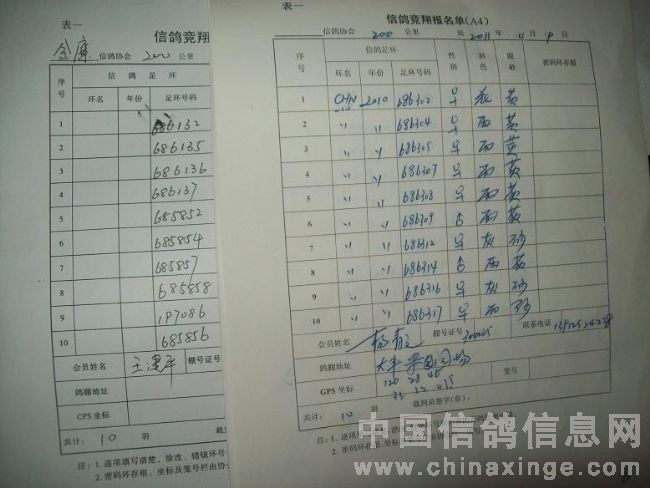 表一
信鸽竞翔
金廉 信鸽协会 200 公里
序号 信鸽足环
环名 年份 足环号码
1 686132
2 686135
3 686136
4 686137
5 685852
6 685854
7 685857
8 685858
9 197086
10 685856
会员姓名 棚号证号
鸽棚地址
GPS 坐标
共计: 10 羽 裁
注: 1. 逐项填写清楚, 涂改、错填环号
2. 密码环存根、坐标及笼号栏由协
表一
信鸽竞翔报名单(A4)
信鸽协会 200 公里 站 2011 年 4 月 9 日
序号 信鸽足环 性别 羽色 眼砂 密码环存根
环名 年份 足环号码
1 CHN 2010 686302 早 灰 黄
2 〃 〃 686304 早 雨 黄
3 〃 〃 686305 早 雨 黄
4 〃 〃 686307 早 雨 黄
5 〃 〃 686308 早 雨 黄
6 〃 〃 686309 雨 黄
7 〃 〃 686312 早 灰 砂
8 〃 〃 686314 雨 黄
9 〃 〃 686316 早 灰 砂
10 〃 〃 686317 早 雨 砂
会员姓名 棚号证号 联系电话
鸽棚地址
GPS 坐标 笼号
共计: 10 羽 裁判员签字(章):
注: 1. 逐项
2. 密码环存根、坐标及
中国信鸽信息网
www.chinaxinge.com